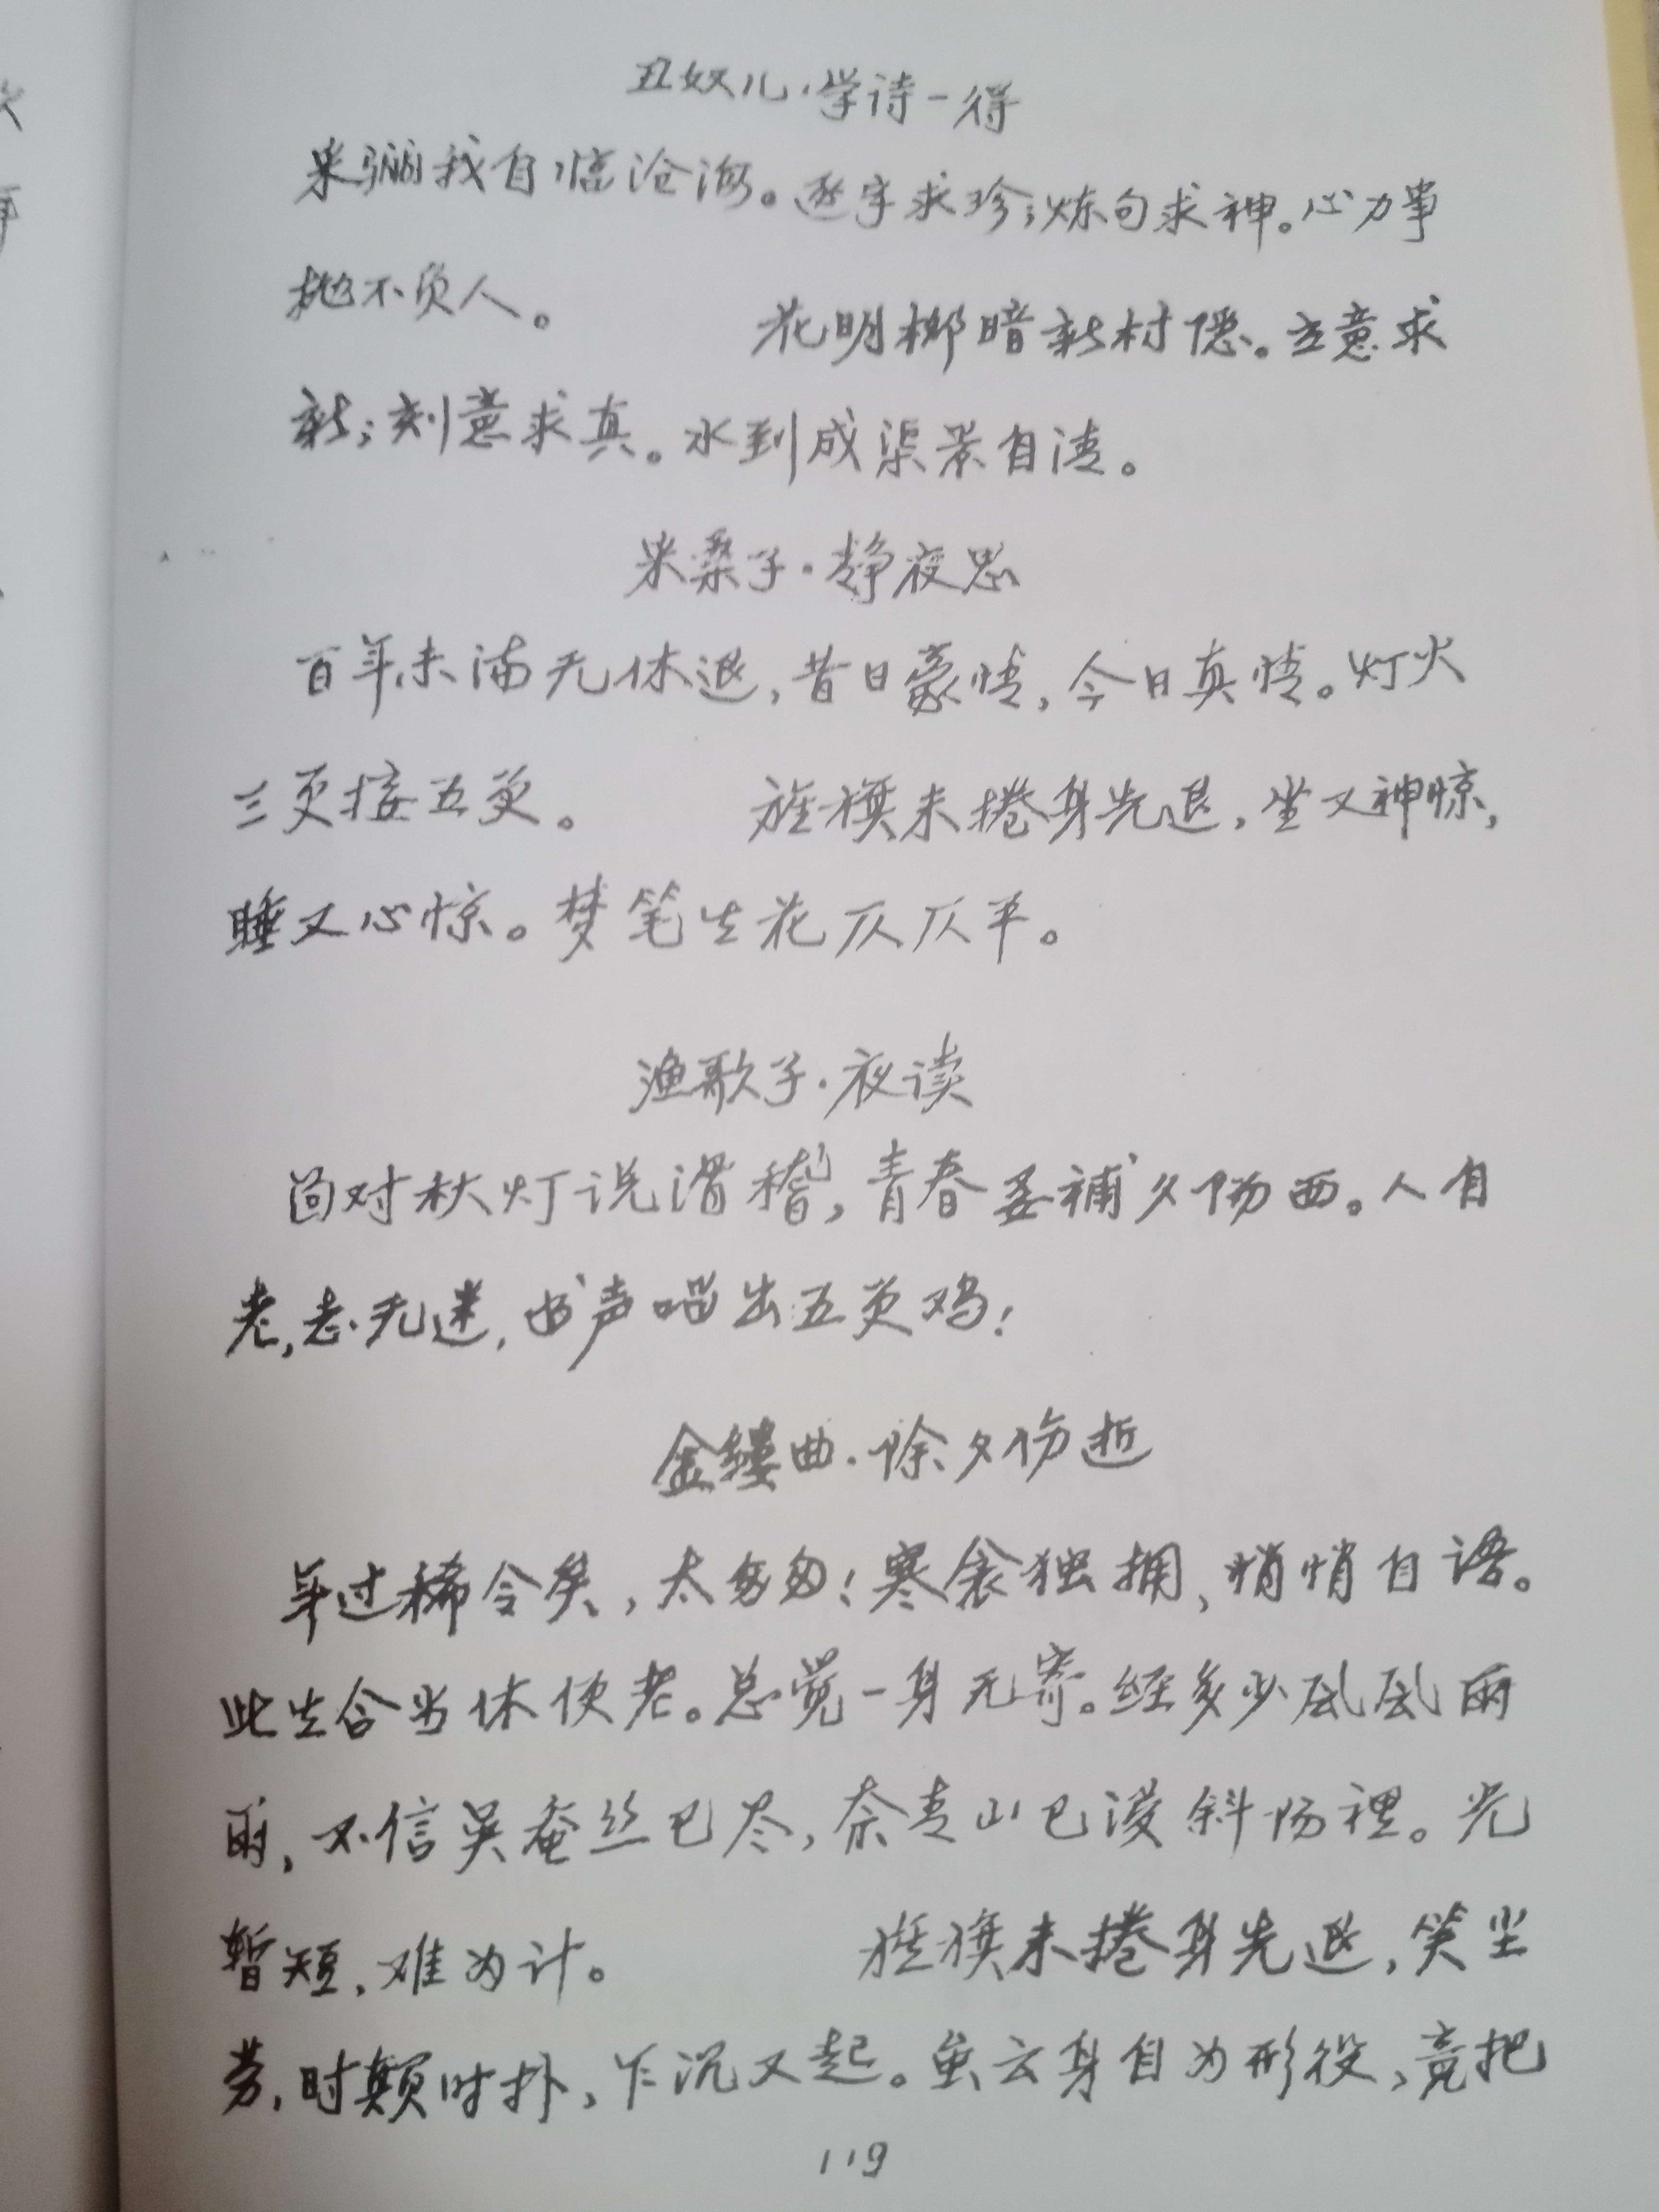 丑奴儿·学诗一得
采骊我自临沧海。逐字求珍;炼句求神。心力事
抛不负人。 花明柳暗新村隐。立意求
新;刻意求真。水到成渠景自清。
采桑子·静夜思
百年未满无休退,昔日豪情,今日真情。灯火
三更接五更。 旌旗未捲身先退,坐又神惊,
睡又心惊。梦笔生花仄仄平。
渔歌子·夜读
面对秋灯说滑稽,青春丢补夕阳西。人自
老,志无迷,书声唱出五更鸡!
金缕曲·除夕伤逝
年过稀令矣,太匆匆!寒衾独拥,悄悄自语。
此生合当休便老。总觉一身无寄。经多少风风雨
雨,不信吴蚕丝已尽,奈青山已没斜阳裡。光
暂短,难为计。 旌旗未捲身先退,笑尘
劳,时颠时扑,乍沉又起。虽云身自为形役,竟把
119